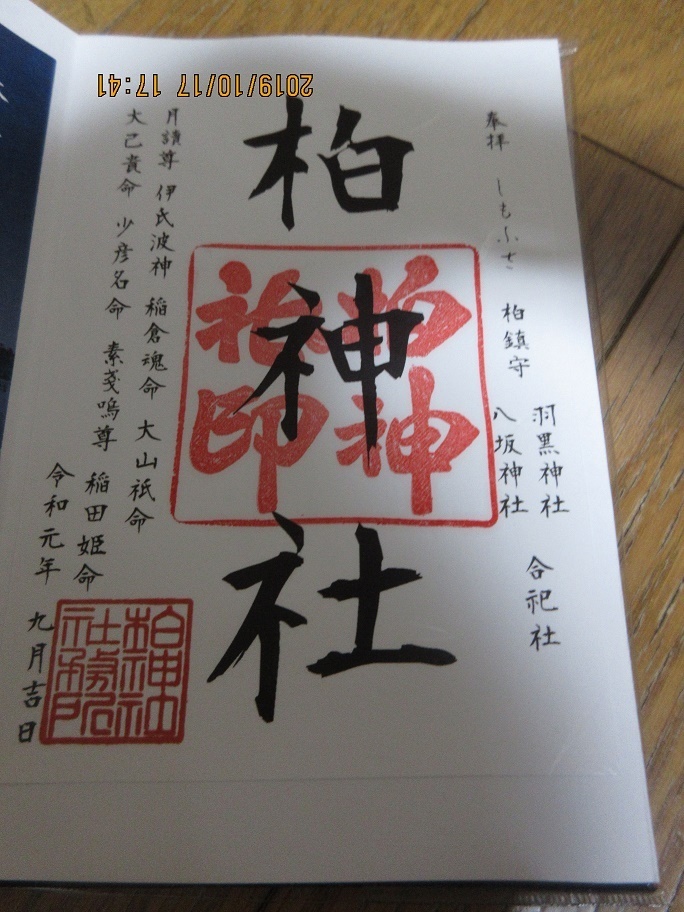 2019/10/17 17:41
奉拝 しもふさ 柏鎮守
羽黒神社
八坂神社
合祀社
柏神社
柏神
社印
月讀尊 伊氐波神 稲倉魂命 大山祇命
大己貴命 少彦名命 素戔嗚尊 稲田姫命
令和元年 九月吉日
柏神社
社務所